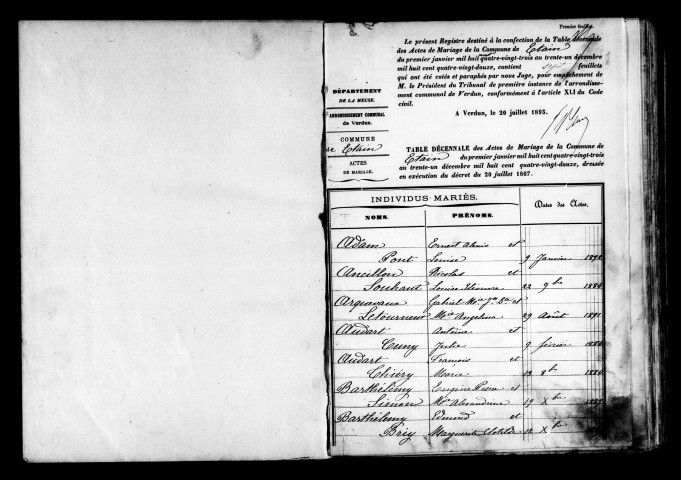 Premier feuillet.
Le présent Registre destiné à la confection de la Table décennale
des Actes de Mariage de la Commune de Etain
du premier janvier mil huit cent quatre-vingt-trois au trente-un décembre
mil huit cent quatre-vingt-douze, contient sept feuillets
qui ont été cotés et paraphés par nous Juge, pour empêchement de
M. le Président du Tribunal de première instance de l'arrondisse-
ment communal de Verdun, conformément à l'article XLI du Code
civil.
A Verdun, le 20 juillet 1893.
DÉPARTEMENT
DE LA MEUSE.
ARRONDISSEMENT COMMUNAL
de Verdun.
COMMUNE
de Etain
ACTES
DE MARIAGE.
TABLE DÉCENNALE des Actes de Mariage de la Commune de
Etain du premier janvier mil huit cent quatre-vingt-trois
au trente-un décembre mil huit cent quatre-vingt-douze, dressée
en exécution du décret du 20 juillet 1807.
INDIVIDUS MARIÉS.
Dates des Actes.
NOMS. PRÉNOMS.
Adam Ernest Alexis et
Pont Louise 9 Janvier 1892
Ancillon Nicolas et
Souhaut Louise Eléonore 22 9bre
Arquevaux Gabriel et
Letourneur Mie Angelina 29 Août 1891
Audart Antoine et
Cuny Julie 9 février
Audart François et
Thiéry Marie 8bre
Barthélemy Eugène Pierre et
Simon Mie Alexandrine 19 Xbre
Barthélemy Edmond et
Briy Marguerite Clotilde 12 Xbre